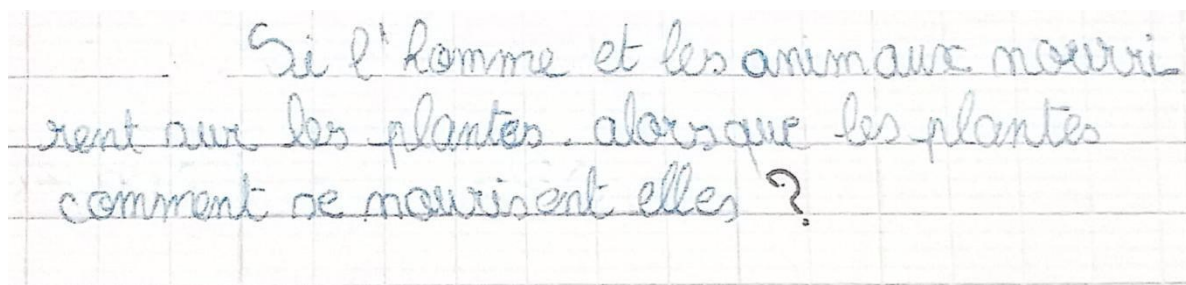 Si l'homme et les animaux nourri
rent sur les plantes. alorsque les plantes
comment se nourisent elles ?